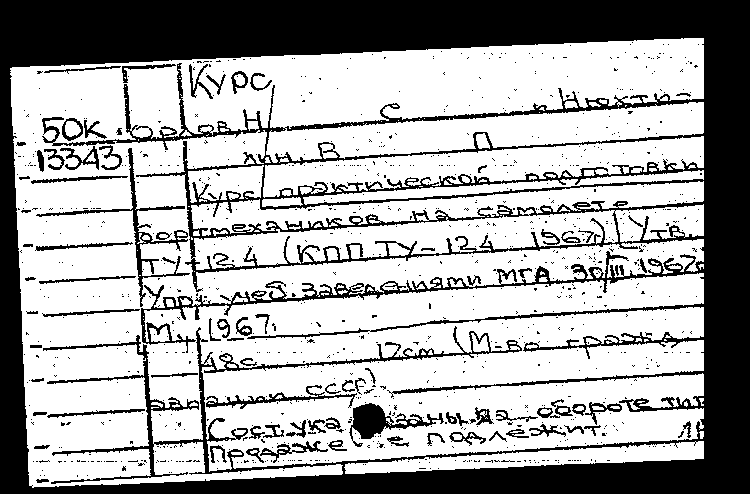 Курс
50К. Орлов, Н С и Нюхти-
13343 лин, В П
Курс практической подготовки
бортмехаников на самолете
ТУ-124 (КПП ТУ-124 1967г.) Утв.
Упр. учеб. заведениями МГА 30/III.1967г
М., 1967.
48с. 17см. (М-во гражд.
авиации СССР)
Сост. указаны на обороте тит
Продаже не подлежит.